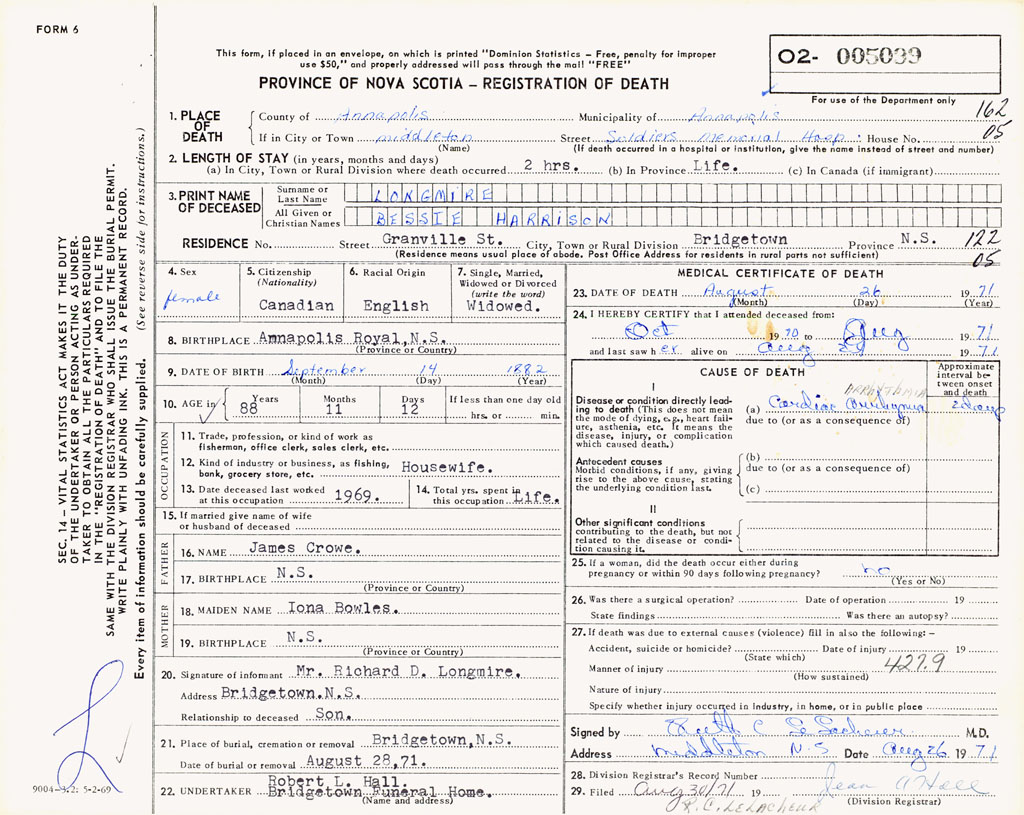 FORM 6
This form, if placed in an envelope, on which is printed "Dominion Statistics – Free, penalty for improper
use $50," and properly addressed will pass through the mail "FREE"
PROVINCE OF NOVA SCOTIA – REGISTRATION OF DEATH
02- 005039
For use of the Department only
162
05
1. PLACE OF DEATH
County of Annapolis Municipality of Annapolis
If in City or Town middleton Street Soldiers Memorial Hosp: House No.
(Name) (If death occurred in a hospital or institution, give the name instead of street and number)
2. LENGTH OF STAY (in years, months and days)
(a) In City, Town or Rural Division where death occurred 2 hrs. (b) In Province Life. (c) In Canada (if immigrant)
3. PRINT NAME OF DECEASED
Surname or Last Name LONGMIRE
All Given or Christian Names BESSIE HARRISON
RESIDENCE No. Street Granville St. City, Town or Rural Division Bridgetown Province N.S.
(Residence means usual place of abode. Post Office Address for residents in rural parts not sufficient)
122
05
4. Sex
female
5. Citizenship
(Nationality)
Canadian
6. Racial Origin
English
7. Single, Married,
Widowed or Divorced
(write the word)
Widowed.
8. BIRTHPLACE Annapolis Royal, N.S.
(Province or Country)
9. DATE OF BIRTH September 14 1882
(Month) (Day) (Year)
10. AGE in Years 88 Months 11 Days 12 If less than one day old
hrs. or min.
OCCUPATION
11. Trade, profession, or kind of work as
fishermen, office clerk, sales clerk, etc.
12. Kind of industry or business, as fishing,
bank, grocery store, etc. Housewife.
13. Date deceased last worked
at this occupation 1969.
14. Total yrs. spent in
this occupation Life.
15. If married give name of wife
or husband of deceased
FATHER
16. NAME James Crowe.
17. BIRTHPLACE N.S.
(Province or Country)
MOTHER
18. MAIDEN NAME Iona Bowles.
19. BIRTHPLACE N.S.
(Province or Country)
20. Signature of informant Mr. Richard D. Longmire.
Address Bridgetown, N.S.
Relationship to deceased Son.
21. Place of burial, cremation or removal Bridgetown, N.S.
Date of burial or removal August 28, 71.
Robert L. Hall.
22. UNDERTAKER Bridgetown Funeral Home.
(Name and address)
MEDICAL CERTIFICATE OF DEATH
23. DATE OF DEATH August 26 1971
(Month) (Day) (Year)
24. I HEREBY CERTIFY that I attended deceased from:
Oct 1970 to Aug 1971
and last saw her alive on Aug 1971
CAUSE OF DEATH
Approximate
interval be-
tween onset
and death
I
ARRHYTHMIA
Disease or condition directly lead-
ing to death (This does not mean
the mode of dying, e.g., heart fail-
ure, asthenia, etc. It means the
disease, injury, or complication
which caused death.)
(a) Cardiac arrhythmia
due to (or as a consequence of)
Antecedent causes
Morbid conditions, if any, giving
rise to the above cause, stating
the underlying condition last.
(b)
due to (or as a consequence of)
(c)
II
Other significant conditions
contributing to the death, but not
related to the disease or condi-
tion causing it.
25. If a woman, did the death occur either during
pregnancy or within 90 days following pregnancy? no
(Yes or No)
26. Was there a surgical operation? Date of operation 19
State findings Was there an autopsy?
27. If death was due to external causes (violence) fill in also the following: –
Accident, suicide or homicide? Date of injury 19
(State which)
427.9
Manner of injury
(How sustained)
Nature of injury
Specify whether injury occurred in Industry, in home, or in public place
Signed by Ruth C M.D.
Address Middleton N.S Date Aug 26 1971
28. Division Registrar's Record Number
29. Filed Aug 30/71 19 Jean A Hall
(Division Registrar)
R.C. LELACHEUR
SEC. 14 – VITAL STATISTICS ACT MAKES IT THE DUTY
OF THE UNDERTAKER OR PERSON ACTING AS UNDER-
TAKER TO OBTAIN ALL THE PARTICULARS REQUIRED
IN THE "REGISTRATION OF DEATH" AND TO FILE THE
SAME WITH THE DIVISION REGISTRAR WHO SHALL ISSUE THE BURIAL PERMIT.
WRITE PLAINLY WITH UNFADING INK. THIS IS A PERMANENT RECORD.
Every item of information should be carefully supplied. (See reverse side for instructions.)
9004-3.2: 5-2-69